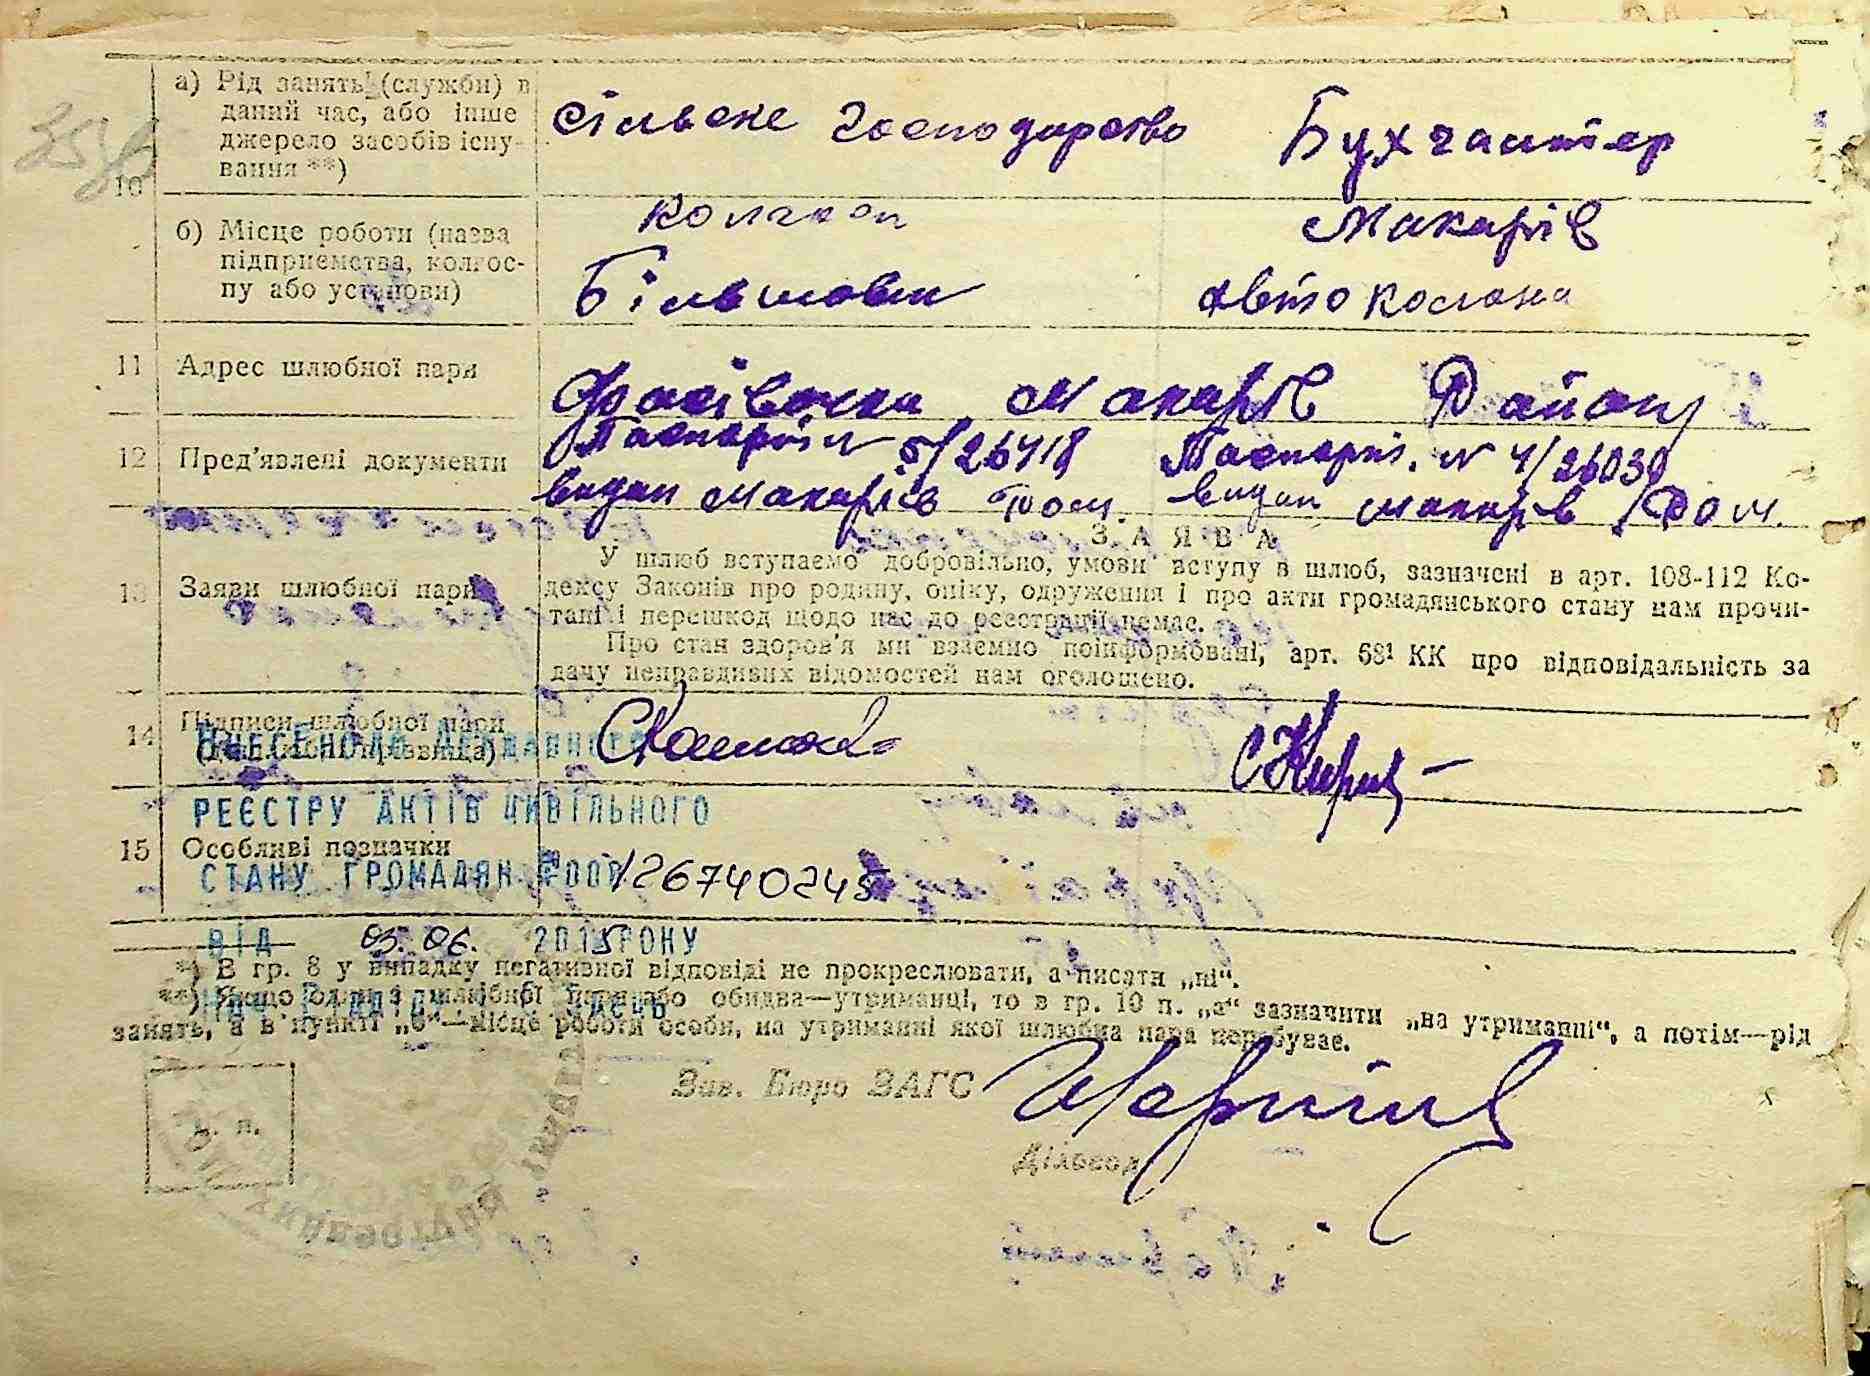 а) Рід занять (служби) в
даний час, або інше
джерело засобів існу-
вання **)
Сільске господарство
Бухгалтер
10
б) Місце роботи (назва
підприємства, колгос-
пу або установи)
колгосп
Більшовик
Макарів
Автоколона
11 Адрес шлюбної пари
Макарів Району
12 Пред'явлені документи
Паспорт N 5/26418
видан Макарів
Паспорт. N 4/26030
видан Макарів
ЗАЯВА
13 Заяви шлюбної пари
У шлюб вступаємо добровільно, умови вступу в шлюб, зазначені в арт. 108-112 Ко-
дексу Законів про родину, опіку, одруження і про акти громадянського стану нам прочи-
тані і перешкод щодо нас до реєстрації немає.
Про стан здоров'я ми взаємно поінформовані, арт. 68¹ КК про відповідальність за
дачу неправдивих відомостей нам оголошено.
14 Підписи шлюбної пари
ВНЕСЕНО ДО ДЕРЖАВНОГО
РЕЄСТРУ АКТІВ ЦИВІЛЬНОГО
15 Особливі позначки
СТАНУ ГРОМАДЯН
ВІД 03.06. 2015 РОКУ
*) В гр. 8 у випадку негативної відповіді не прокреслювати, а писати „ні“.
**) Якщо один з шлюбної пари або обидва—утриманці, то в гр. 10 п. „а“ зазначити „на утриманні“, а потім—рід
занять, а в пункті „б“—місце роботи особи, на утриманні якої шлюбна пара перебуває.
Зав. Бюро ЗАГС
Діловод